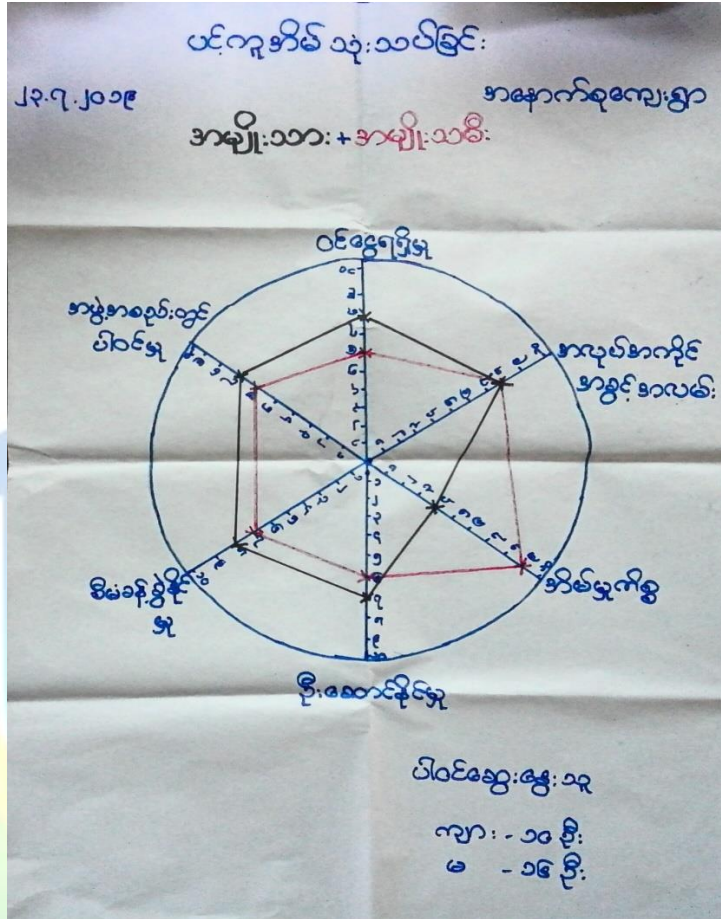 ပင့်ကူအိမ် သုံးသပ်ခြင်း
၂၃.၇.၂၀၁၉
အနောက်စုကျေးရွာ
အမျိုးသား + အမျိုးသမီး
ဝင်ငွေရရှိမှု
အလုပ်အကိုင်
အခွင့်အလမ်း
အိမ်မှုကိစ္စ
ဦးဆောင်နိုင်မှု
စီမံခန့်ခွဲနိုင်
မှု
အဖွဲ့အစည်းတွင်
ပါဝင်မှု
ပါဝင်ဆွေးနွေးသူ
ကျား - ၁၀ ဦး
မ - ၁၆ ဦး